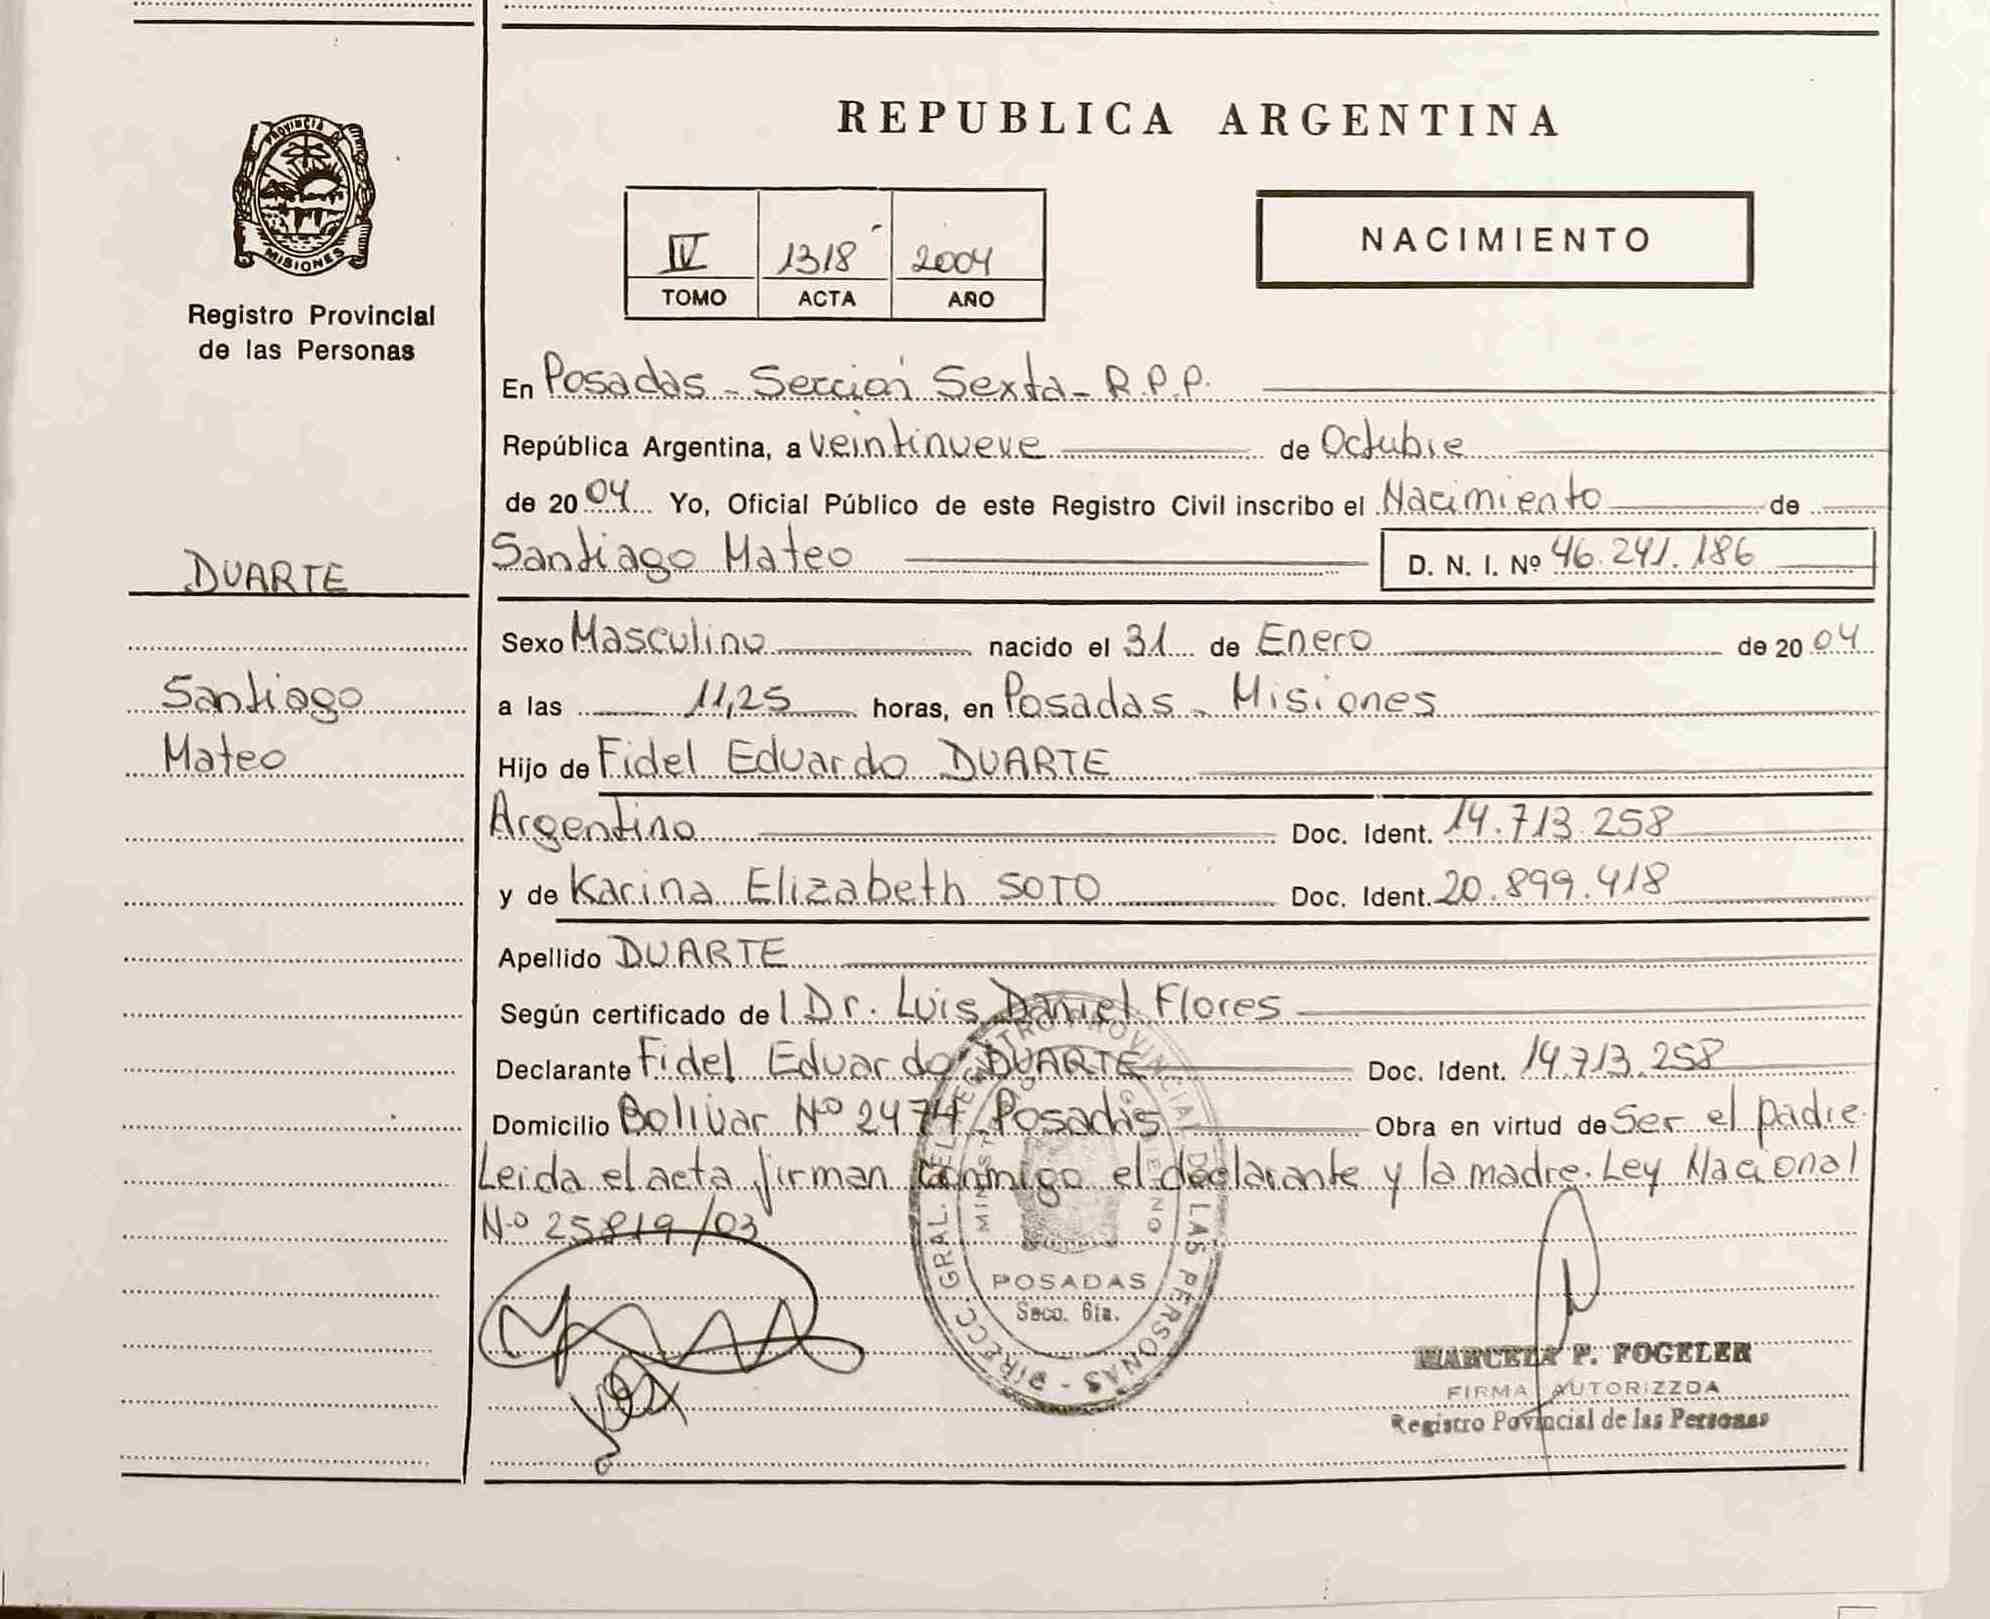 REPUBLICA ARGENTINA
PROVINCIA DE
MISIONES
Registro Provincial
de las Personas
IV 1318 2004
TOMO ACTA AÑO
NACIMIENTO
En Posadas - Sección Sexta - R.P.P.
República Argentina, a veintinueve de Octubre
de 2004 Yo, Oficial Público de este Registro Civil inscribo el Nacimiento de
Santiago Mateo D. N. I. Nº 46.241.186
DUARTE
Santiago
Mateo
Sexo Masculino nacido el 31 de Enero de 2004
a las 11,25 horas, en Posadas - Misiones
Hijo de Fidel Eduardo DUARTE
Argentino Doc. Ident. 14.713.258
y de Karina Elizabeth SOTO Doc. Ident. 20.899.418
Apellido DUARTE
Según certificado de l Dr. Luis Daniel Flores
Declarante Fidel Eduardo DUARTE Doc. Ident. 14.713.258
Domicilio Bolivar Nº 2474 Posadas Obra en virtud de Ser el padre.
Leida el acta firman conmigo el declarante y la madre. Ley Nacional
Nº 25819/03
DIRECC. GRAL. DEL REGISTRO PROVINCIAL DE LAS PERSONAS
POSADAS
Secc. 6ta.
MARCELA P. FOGELER
FIRMA AUTORIZZDA
Registro Povincial de las Personas